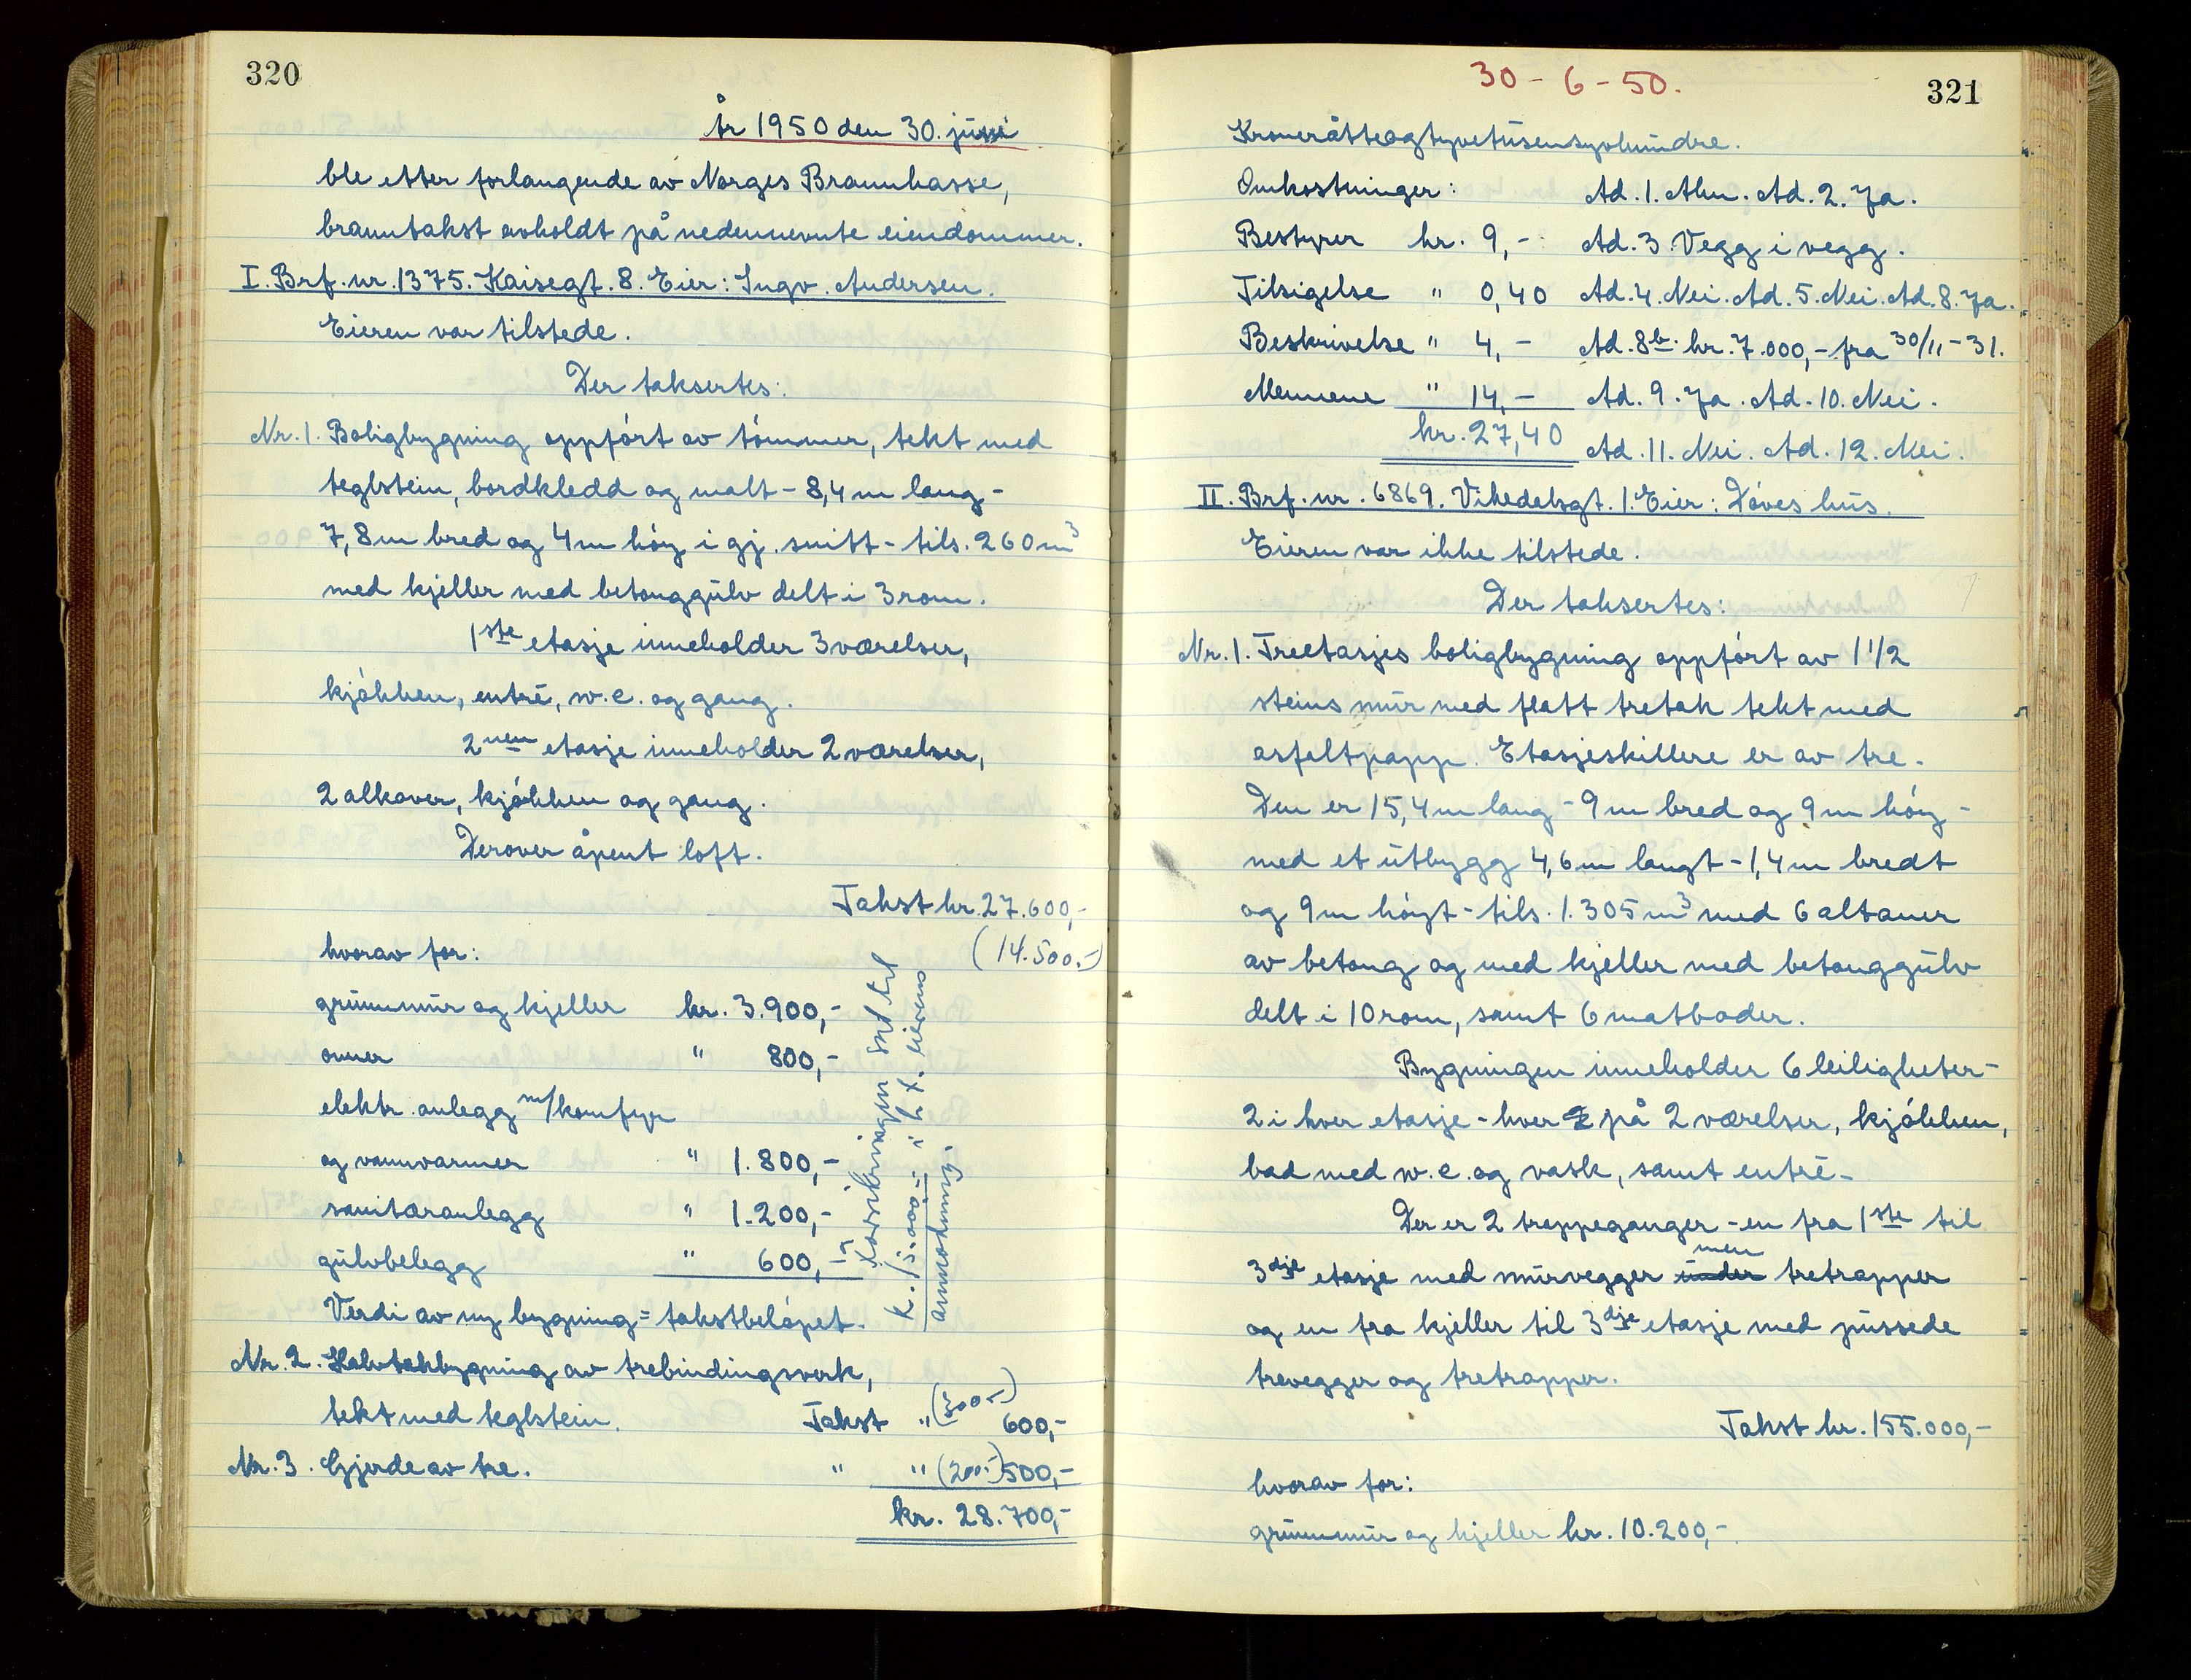 320
År 1950 den 30. juni
ble etter forlangende av Norges Brannkasse,
branntakst avholdt på nedennevnte eiendommer.
I. Brf. nr. 1375. Kaisegt. 8. Eier: Ingv. Andersen.
Eieren var tilstede.
Der taksertes:
Nr. 1. Boligbygning oppført av tømmer, tekt med
teglstein, bordkledd og malt - 8,4 m lang -
7,8 m bred og 4 m høy i gj. snitt - tils. 260 m³
med kjeller med betonggulv delt i 3 rom.
1ste etasje inneholder 3 værelser,
kjøkken, entré, w.c. og gang.
2nen etasje inneholder 2 værelser,
2 alkover, kjøkken og gang.
Derover åpent loft.
Takst kr. 27.600,-
(14.500.-)
hvorav for:
grunnmur og kjeller kr. 3.900,-
ovner " 800,-
elektr. anlegg m/komfyr
og vannvarmer " 1.800,-
sanitæranlegg " 1.200,-
gulvbelegg " 600,-
Forsikringen sat til
k. 15.000.- i h.t. eierens
anmodning.
Verdi av ny bygning = takstbeløpet.
Nr. 2. Halvtakbygning av trebindingsverk,
tekt med teglstein. Takst " (300.-) 600,-
Nr. 3. Gjerde av tre. " " (200.-) 500,-
kr. 28.700,-
30-6-50.
321
Kroneråtteogtyvetusensyvhundre.
Omkostninger: Ad. 1. Alm. Ad. 2. Ja.
Bestyrer kr. 9,- Ad. 3. Vegg i vegg.
Tilsigelse " 0,40 Ad. 4. Nei. Ad. 5. Nei. Ad. 8. Ja.
Beskrivelse " 4,- Ad. 8b. kr. 7.000,- fra 30/11-31.
Mennene " 14,- Ad. 9. Ja. Ad. 10. Nei.
kr. 27,40 Ad. 11. Nei. Ad. 12. Nei.
II. Brf. nr. 6869. Vikedalsgt. 1. Eier: Døves hus.
Eieren var ikke tilstede.
Der taksertes:
Nr. 1. Treetasjes boligbygning oppført av 1 1/2
steins mur med flatt tretak tekt med
asfaltpapp. Etasjeskillere er av tre.
Den er 15,4 m lang - 9 m bred og 9 m høy -
med et utbygg 4,6 m langt - 1,4 m bredt
og 9 m høyt - tils. 1.305 m³ med 6 altaner
av betong og med kjeller med betonggulv
delt i 10 rom, samt 6 matboder.
Bygningen inneholder 6 leiligheter -
2 i hver etasje - hver på 2 værelser, kjøkken,
bad med w.c. og vask, samt entré -
Der er 2 trappeganger - en fra 1ste til
3dje etasje med murvegger under men tretrapper
og en fra kjeller til 3dje etasje med pussede
trevegger og tretrapper.
Takst kr. 155.000,-
hvorav for:
grunnmur og kjeller kr. 10.200,-